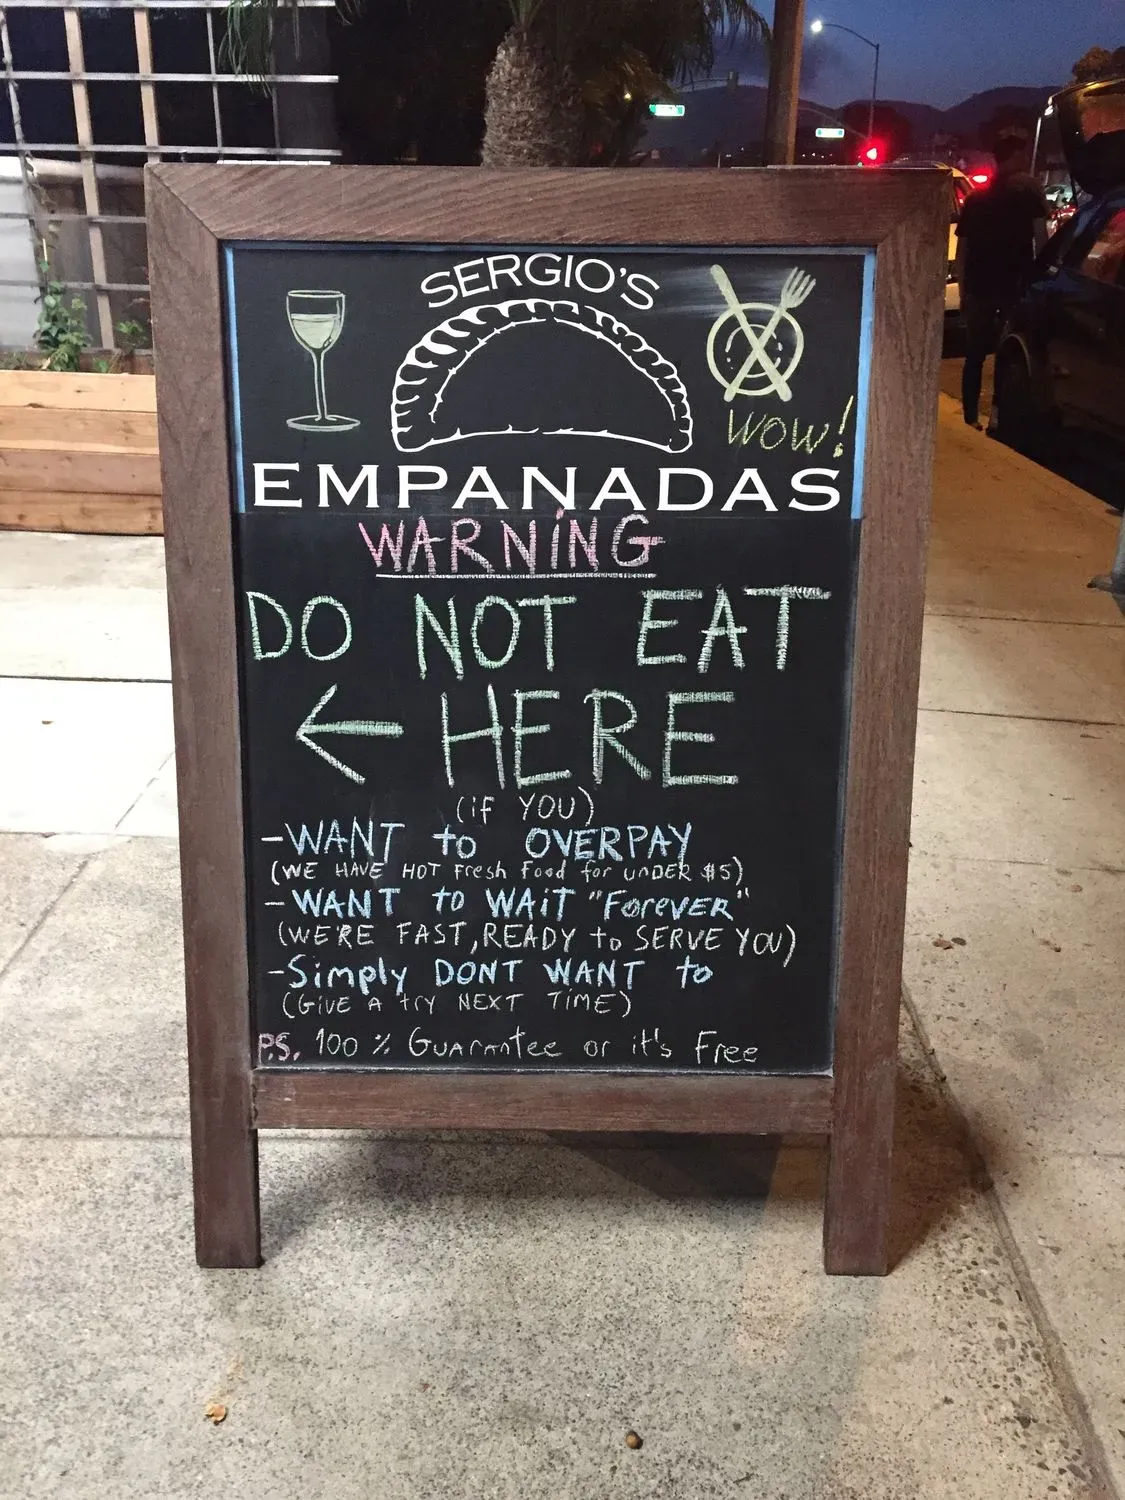 SERGIO'S
WOW!
EMPANADAS
WARNING
DO NOT EAT
← HERE
(iF YOU)
-WANT to OVERPAY
(WE HAVE HOT Fresh Food for UNDER $5)
-WANT to WAiT "ForevER"
(WE'RE FAST, READY to SERVE YOU)
-Simply DONT WANT to
(GiVE A trY NEXT TiME)
P.S. 100 % GuArAntee or it's Free